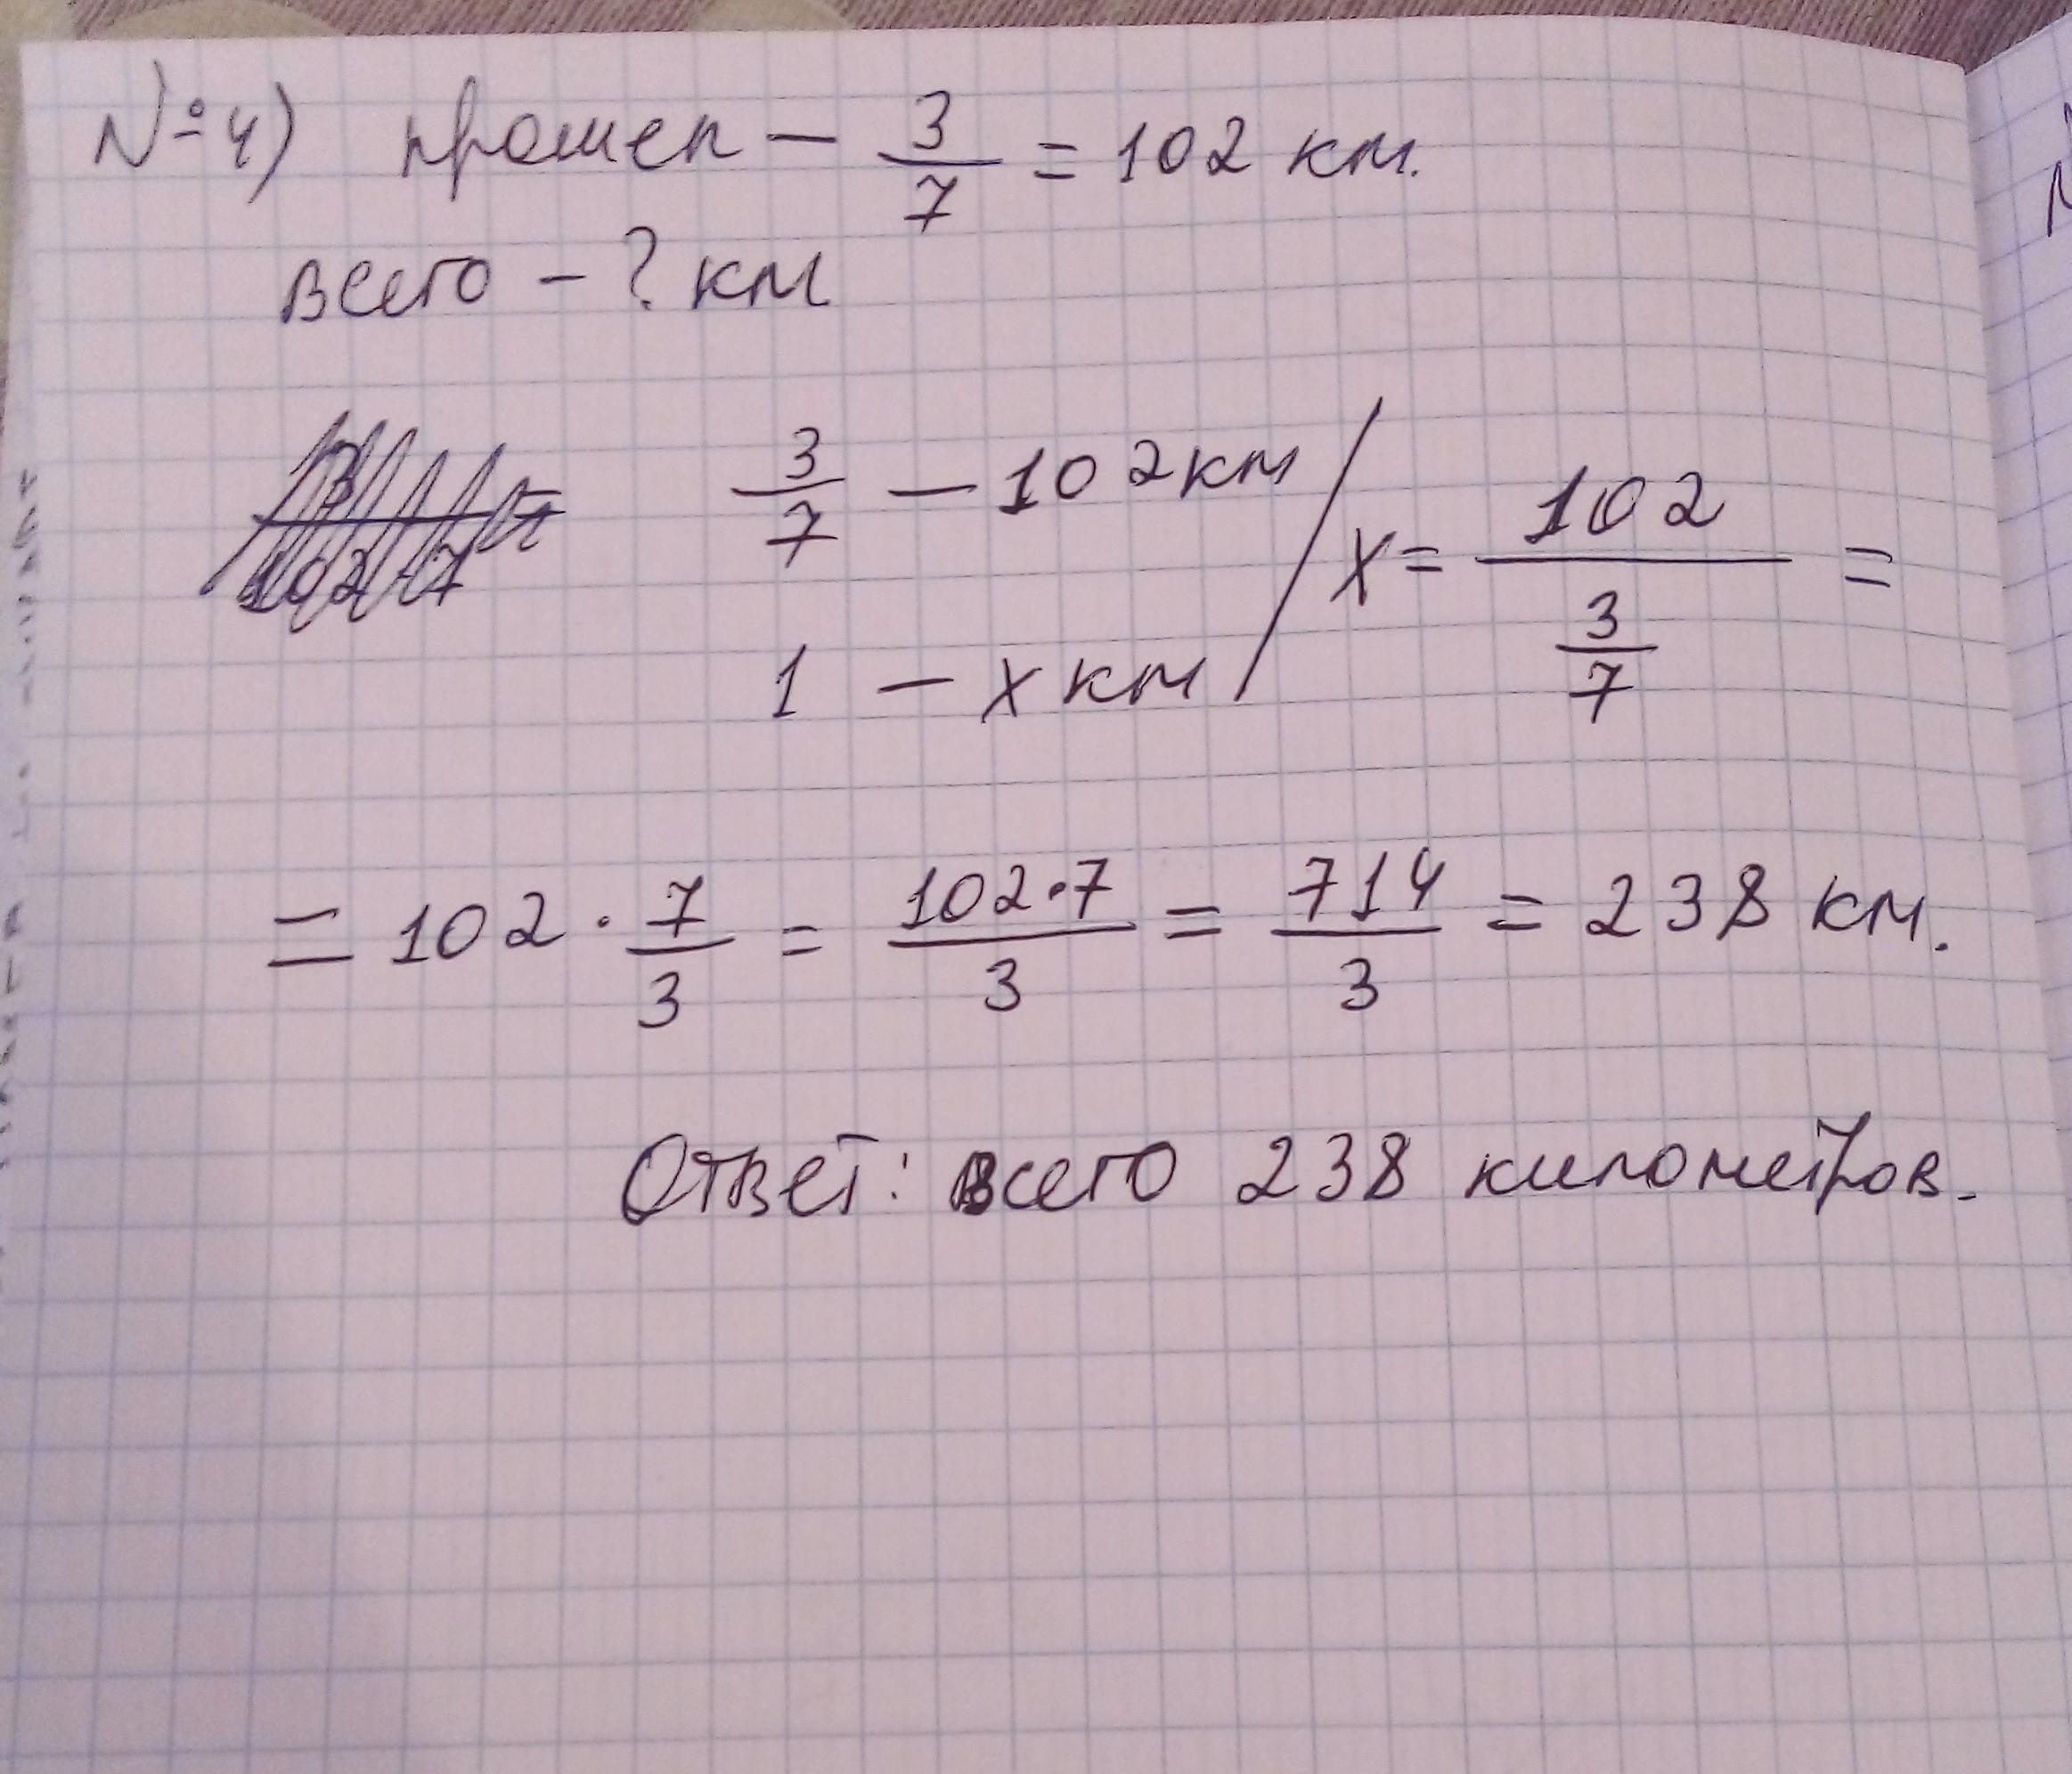 №4) прошел — 3/7 = 102 км.
всего — ? км
3/7 — 102 км
1 — x км
x = 102 / (3/7) =
= 102 · 7/3 = 102·7/3 = 714/3 = 238 км.
Ответ: всего 238 километров.